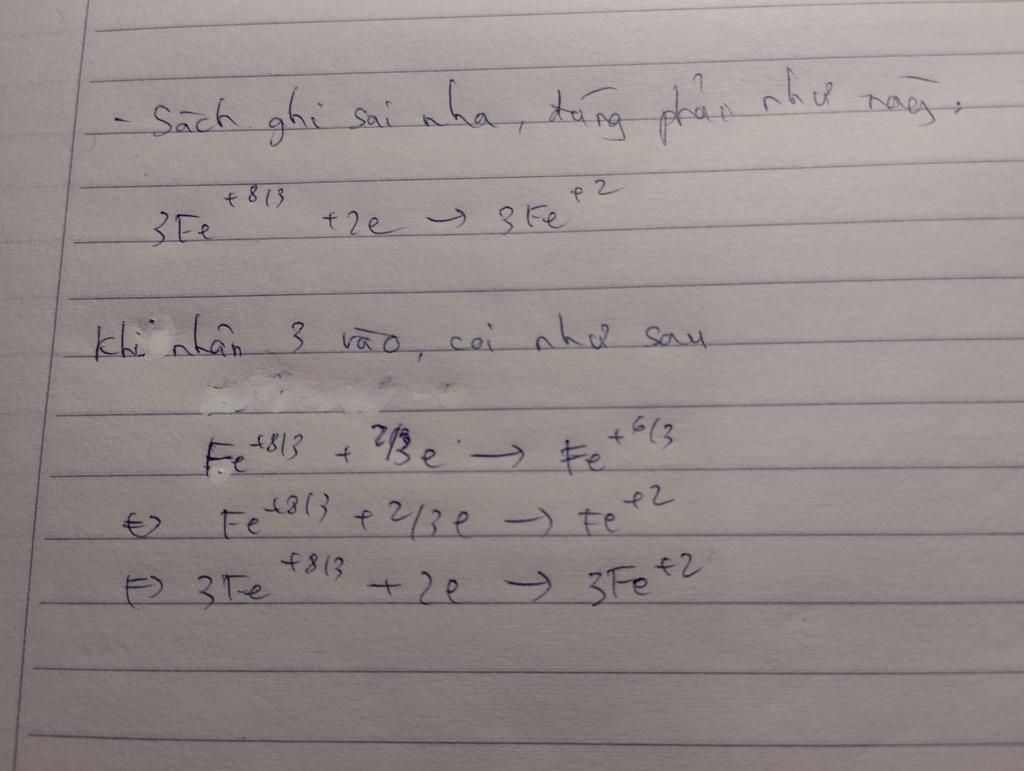 - Sách ghi sai nha, đáng phải như này:
3Fe^{+8/3} +2e → 3Fe^{+2}
Khi nhân 3 vào, coi như sau
Fe^{+8/3} + 2/3e → Fe^{+6/3}
⇔ Fe^{+8/3} + 2/3e → Fe^{+2}
⇔ 3Fe^{+8/3} + 2e → 3Fe^{+2}